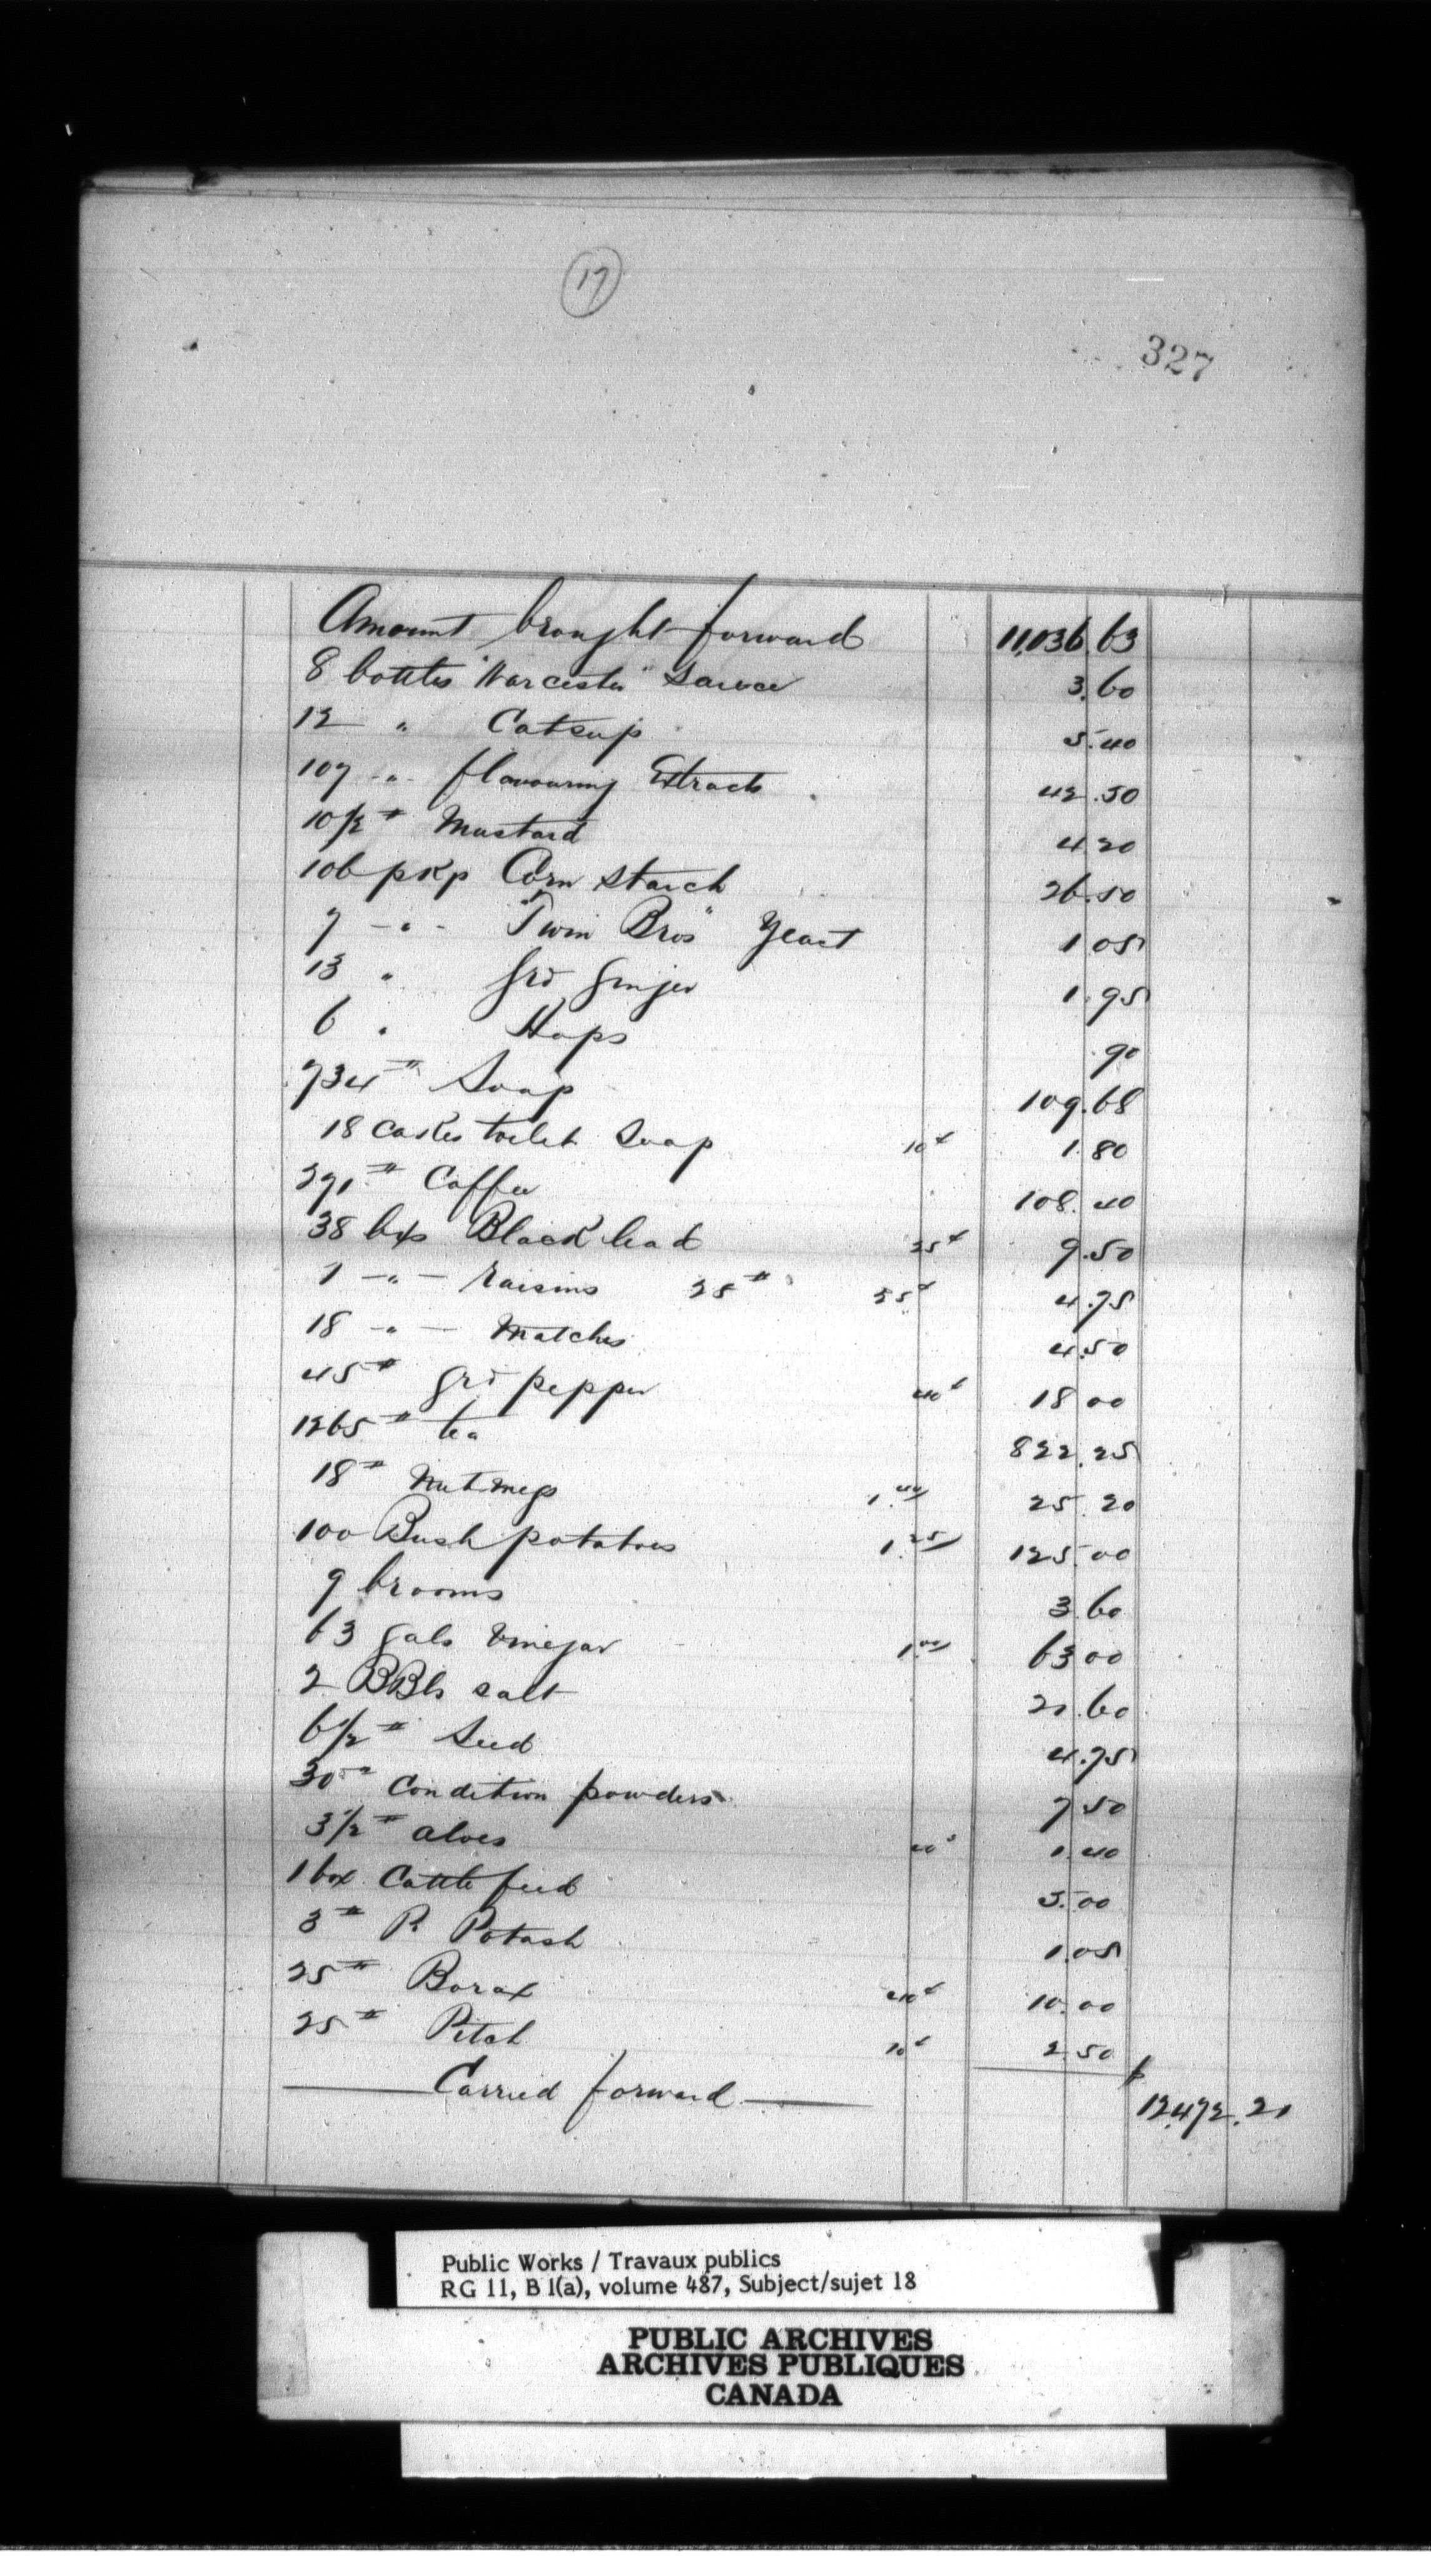 17
327
Amount brought forward 11,036 63
8 bottles "Worcester" Sauce 3.60
12 " Catsup 5.40
107 -"- flavouring Extracts 42.50
10½ # Mustard 4 20
106 pkgs Corn Starch 26.50
7 -"- "Twin Bros" Yeast 1 05
13 " Grd Ginger 1.95
6 " Hops .90
734 # Soap 109.68
18 Cakes toilet Soap 10¢ 1.80
271 # Coffee 108.40
38 bxs Black lead 25¢ 9.50
1 -"- raisins 25 # 4.75
18 -"- Matches 4.50
45 # Grd pepper 40¢ 18 00
1265 # tea 822.25
18 # Nutmegs 1.40 25.20
100 Bush potatoes 1.25 125.00
9 brooms 3.60
63 gals Vinegar 1.00 63 00
2 BBls salt 21.60
6½ # Seed 4.75
30 " Condition powders 7 50
3½ # aloes 40¢ 1.40
1 box Cattle feed 5.00
3 # P. Potash 1.05
25 # Borax 40¢ 10.00
25 # Pitch 10¢ 2.50
Carried forward $ 12,472.21
Public Works / Travaux publics
RG 11, B 1(a), volume 487, Subject/sujet 18
PUBLIC ARCHIVES
ARCHIVES PUBLIQUES
CANADA